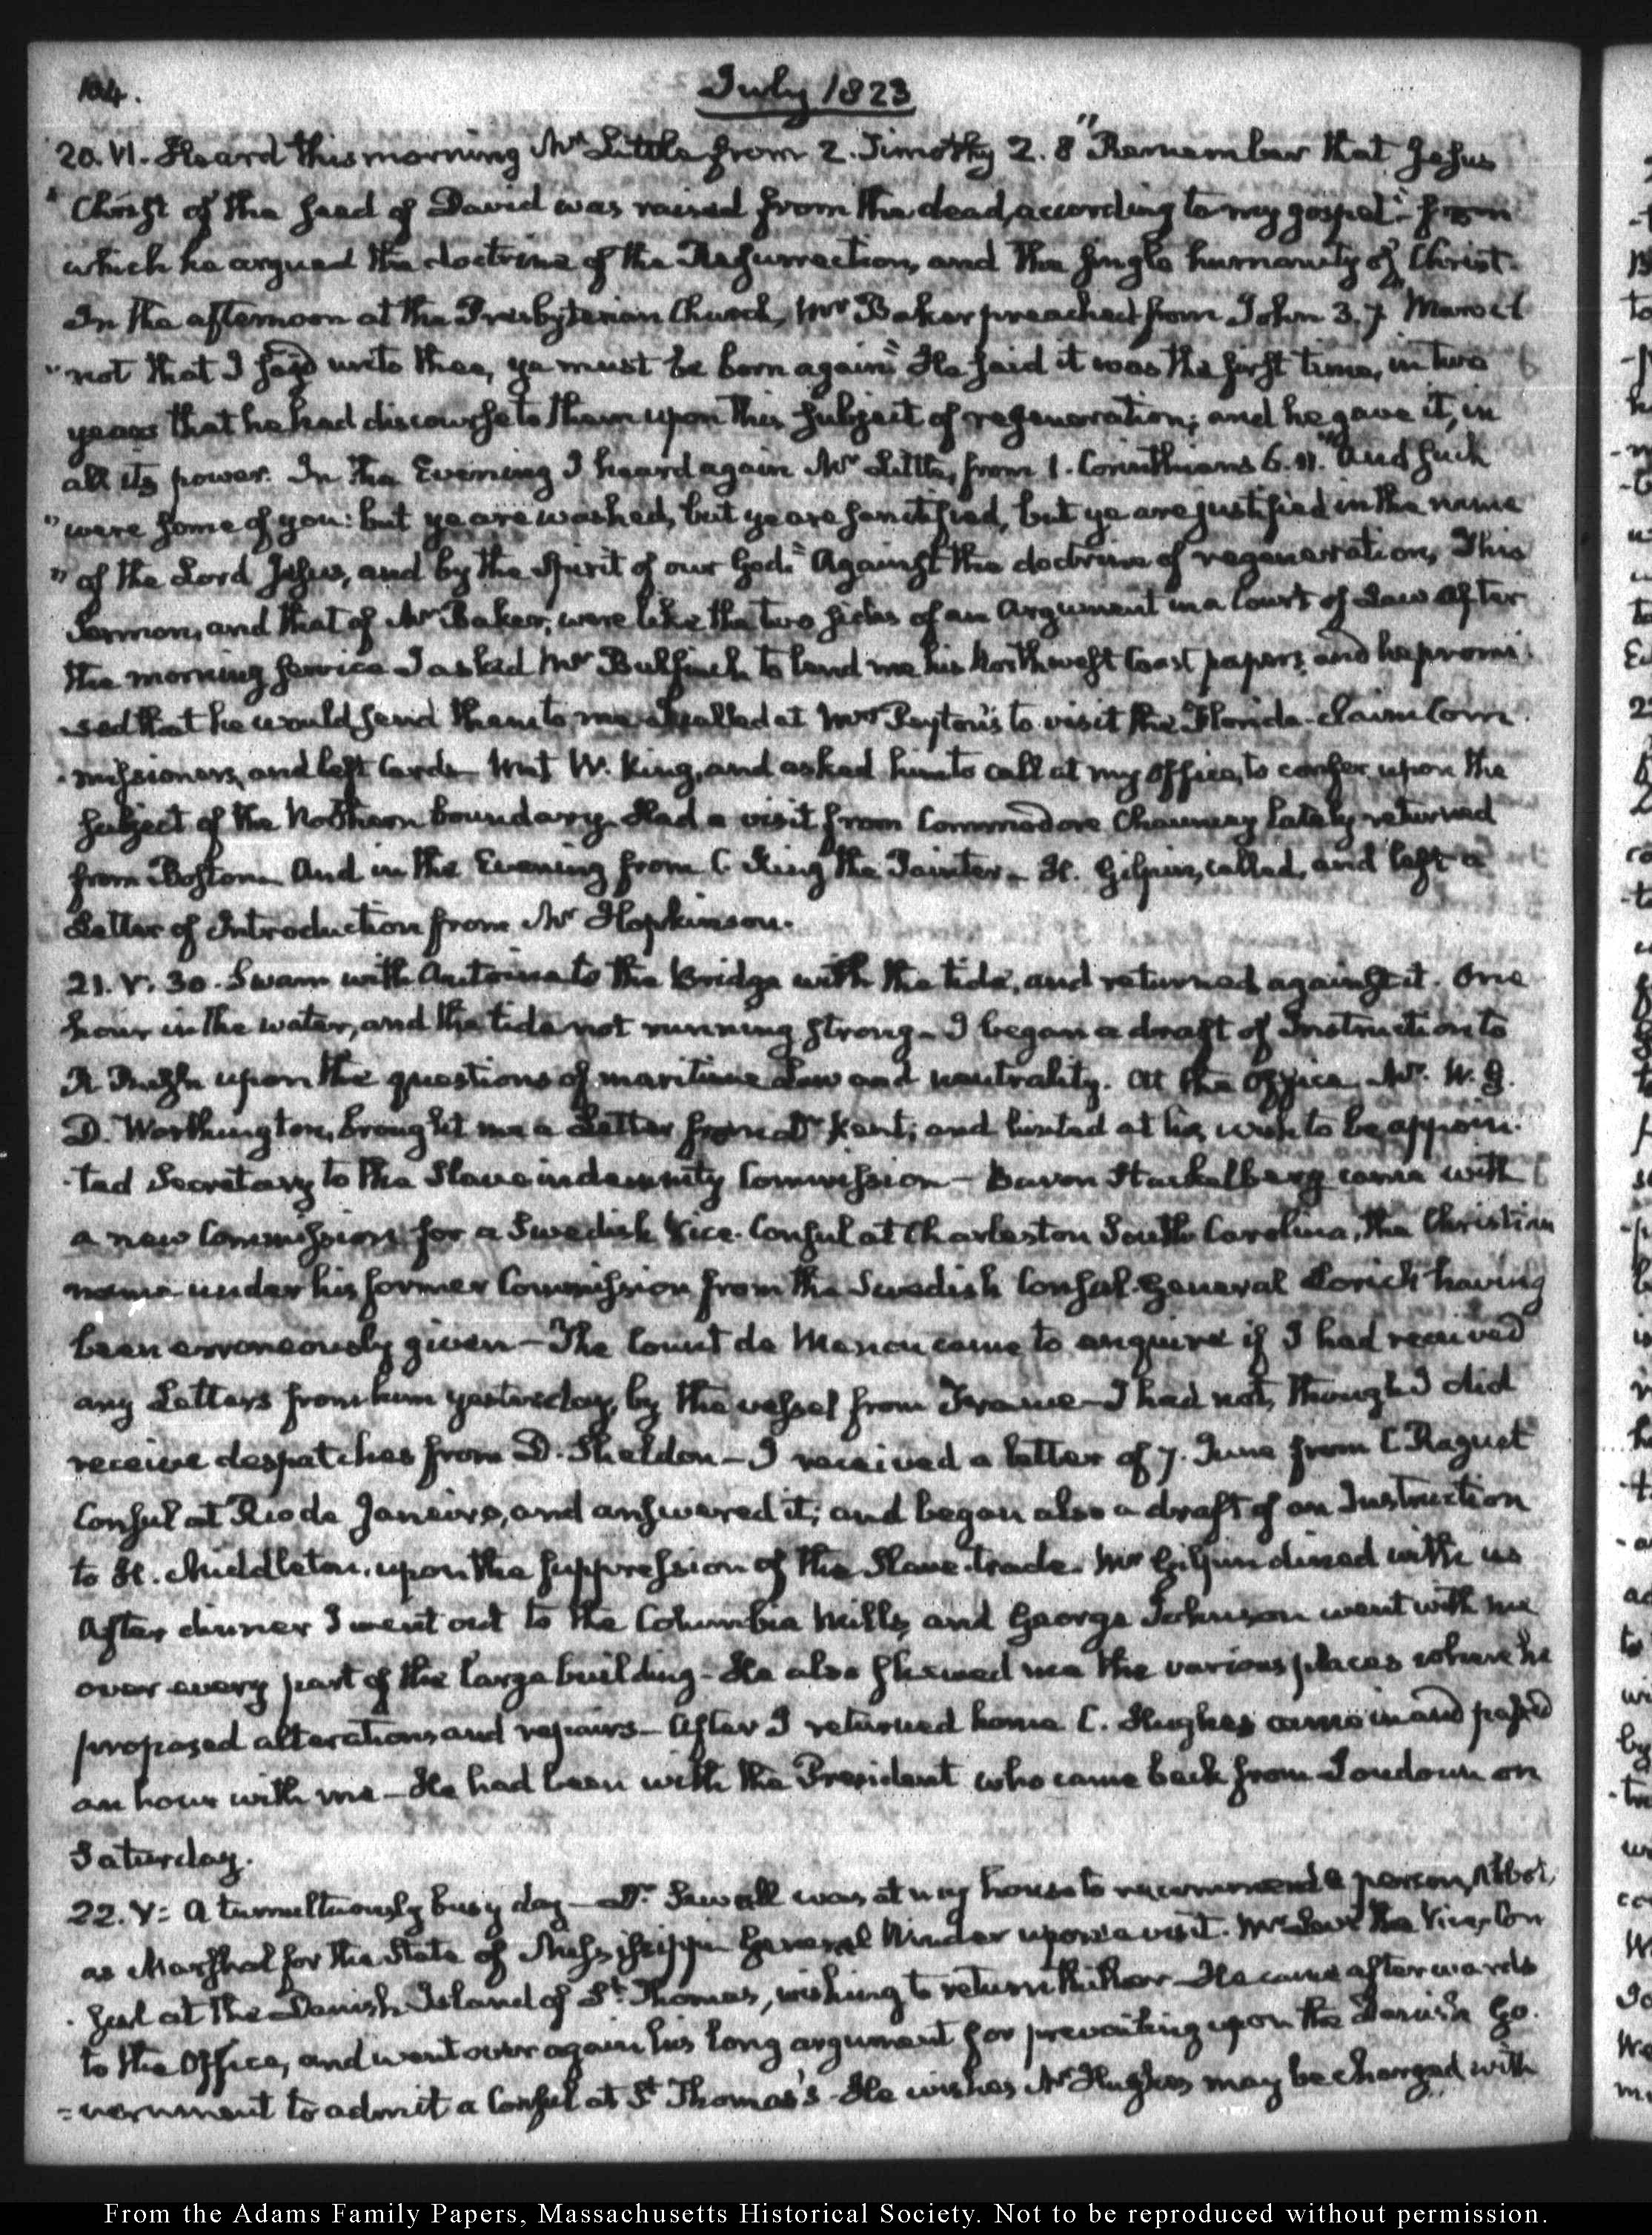 104.
July 1823
20. VI. Heard this morning Mr Little from 2. Timothy 2. 8 "Remember that Jesus
" Christ of the seed of David was raised from the dead, according to my gospel"- from
which he argued the doctrine of the Resurrection, and the single humanity of Christ.
In the afternoon at the Presbyterian Church, Mr Baker preached from John 3. 7 Marvel
" not that I said unto thee, ye must be born again" He said it was the first time, in two
years that he had discourse to them upon this subject of regeneration; and he gave it, in
all its power. In the Evening I heard again Mr Little, from 1. Corinthians 6. 11. "And such
" were some of you: but ye are washed, but ye are sanctified, but ye are justified in the name
" of the Lord Jesus, and by the Spirit of our God" Against the doctrine of regeneration, This
Sermon, and that of Mr Baker, were like the two sides of an Argument in a Court of Law After
the morning service I asked Mr Bulfinch to lend me his North west Coast papers, and he promi-
sed that he would send them to me. I called at Mrs Peyton's to visit the Florida-claim Com
-missioners, and left Cards. Met W. King, and asked him to call at my Office, to confer upon the
subject of the Northern boundary. Had a visit from Commodore Chauncey lately returned
from Boston. And in the Evening from C King the Painter- H. Gilpin, called, and left a
Letter of Introduction from Mr Hopkinson.
21. V. 30. Swam with Antoine to the Bridge with the tide, and returned against it. One
hour in the water, and the tide not running strong- I began a draft of Instruction to
R Rush upon the questions of maritime Law and neutrality. At the Office, Mr. W. G.
D. Worthington, brought me a Letter from Dr Kent, and hinted at his wish to be appoin-
-ted Secretary to the Slave indemnity Commission- Baron Stackelberg came with
a new Commission for a Swedish Vice-Consul at Charleston South Carolina, the Christian
name under his former Commission from the Swedish Consul-General Lorich having
been erroneously given- The Count de Menou came to enquire if I had received
any Letters from him yesterday, by the vessel from France- I had not, though I did
receive despatches from D. Sheldon- I received a letter of 7. June from C Raguet
Consul at Rio de Janeiro, and answered it; and began also a draft of an Instruction
to H. Middleton, upon the suppression of the Slave-trade. Mr Gilpin dined with us
After dinner I went out to the Columbia Mills, and George Johnson went with me
over every part of the large building- He also shewed me the various places where he
proposed alterations and repairs- After I returned home C. Hughes came in and passed
an hour with me- He had been with the President who came back from Loudoun on
Saturday.
22. V: A tumultuously busy day- Dr Sewall was at my house to recommend a person, Abbot,
as Marshal for the State of Mississippi General Winder upon a visit. Mr Levy the Vice, Con
-sul at the Danish Island of St. Thomas, wishing to return thither- He came afterwards
to the Office, and went over again his long argument for prevailing upon the Danish Go-
=vernment to admit a Consul at St Thomas's- He wishes Mr Hughes may be charged with
From the Adams Family Papers, Massachusetts Historical Society. Not to be reproduced without permission.